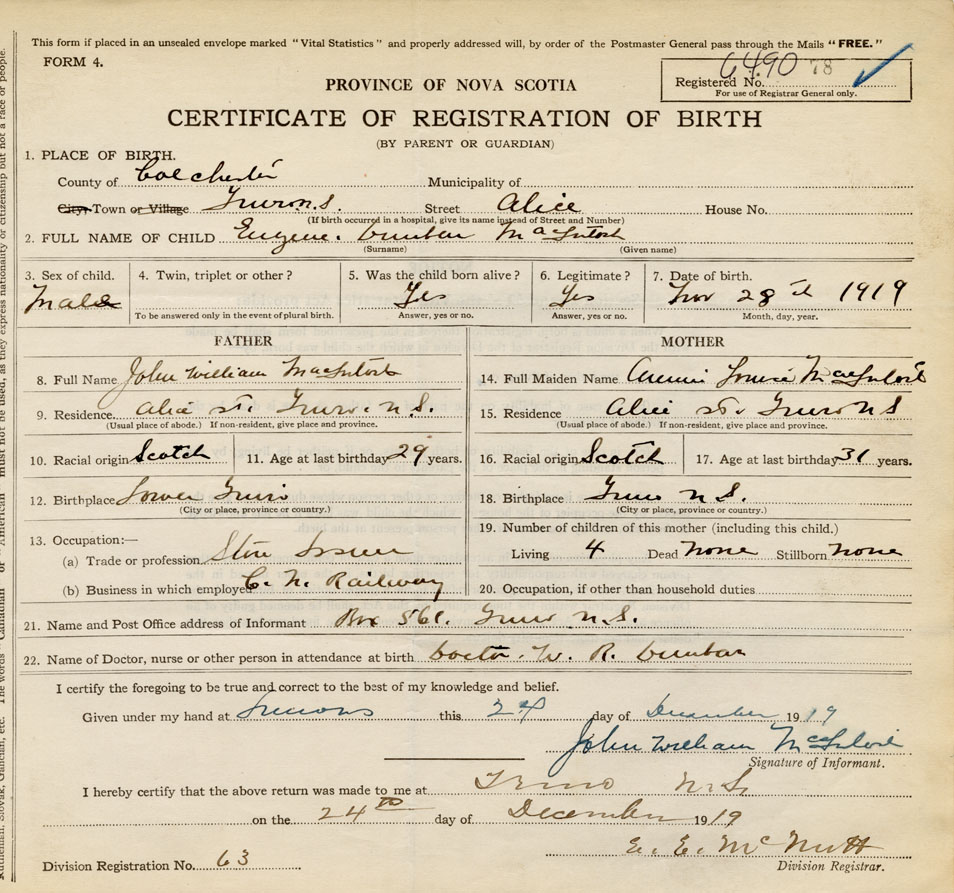 This form if placed in an unsealed envelope marked "Vital Statistics" and properly addressed will, by order of the Postmaster General pass through the Mails "FREE."
FORM 4.
6490 78
Registered No.
For use of Registrar General only.
PROVINCE OF NOVA SCOTIA
CERTIFICATE OF REGISTRATION OF BIRTH
(BY PARENT OR GUARDIAN)
1. PLACE OF BIRTH.
County of Colchester Municipality of
City, Town or Village Truro N.S. Street Alice House No.
(If birth occurred in a hospital, give its name instead of Street and Number)
2. FULL NAME OF CHILD Eugene Dunbar MacIntosh
(Surname) (Given name)
3. Sex of child. 4. Twin, triplet or other? 5. Was the child born alive? 6. Legitimate? 7. Date of birth.
Male Yes Yes Nov 28th 1919
To be answered only in the event of plural birth. Answer, yes or no. Answer, yes or no. Month, day, year.
FATHER
8. Full Name John William MacIntosh
9. Residence Alice St. Truro. N.S.
(Usual place of abode.) If non-resident, give place and province.
10. Racial origin Scotch 11. Age at last birthday 29 years.
12. Birthplace Lower Truro
(City or place, province or country.)
13. Occupation:—
(a) Trade or profession
(b) Business in which employed C. N. Railway
MOTHER
14. Full Maiden Name Annie MacIntosh
15. Residence Alice St. Truro N S
(Usual place of abode.) If non-resident, give place and province.
16. Racial origin Scotch 17. Age at last birthday 31 years.
18. Birthplace Truro N.S.
(City or place, province or country.)
19. Number of children of this mother (including this child.)
Living 4 Dead None Stillborn None
20. Occupation, if other than household duties
21. Name and Post Office address of Informant Box 561. Truro N.S.
22. Name of Doctor, nurse or other person in attendance at birth Doctor. W. R. Dunbar
I certify the foregoing to be true and correct to the best of my knowledge and belief.
Given under my hand at this 24 day of December 1919
John William McIntosh
Signature of Informant.
I hereby certify that the above return was made to me at Truro N.S.
on the 24th day of December 1919
E. E. McNutt
Division Registration No. 63 Division Registrar.
must not be used, as they express nationality or citizenship but not a race or people.
The words "Canadian" or "American"
Ruthenian, Slovak, Galician, etc.